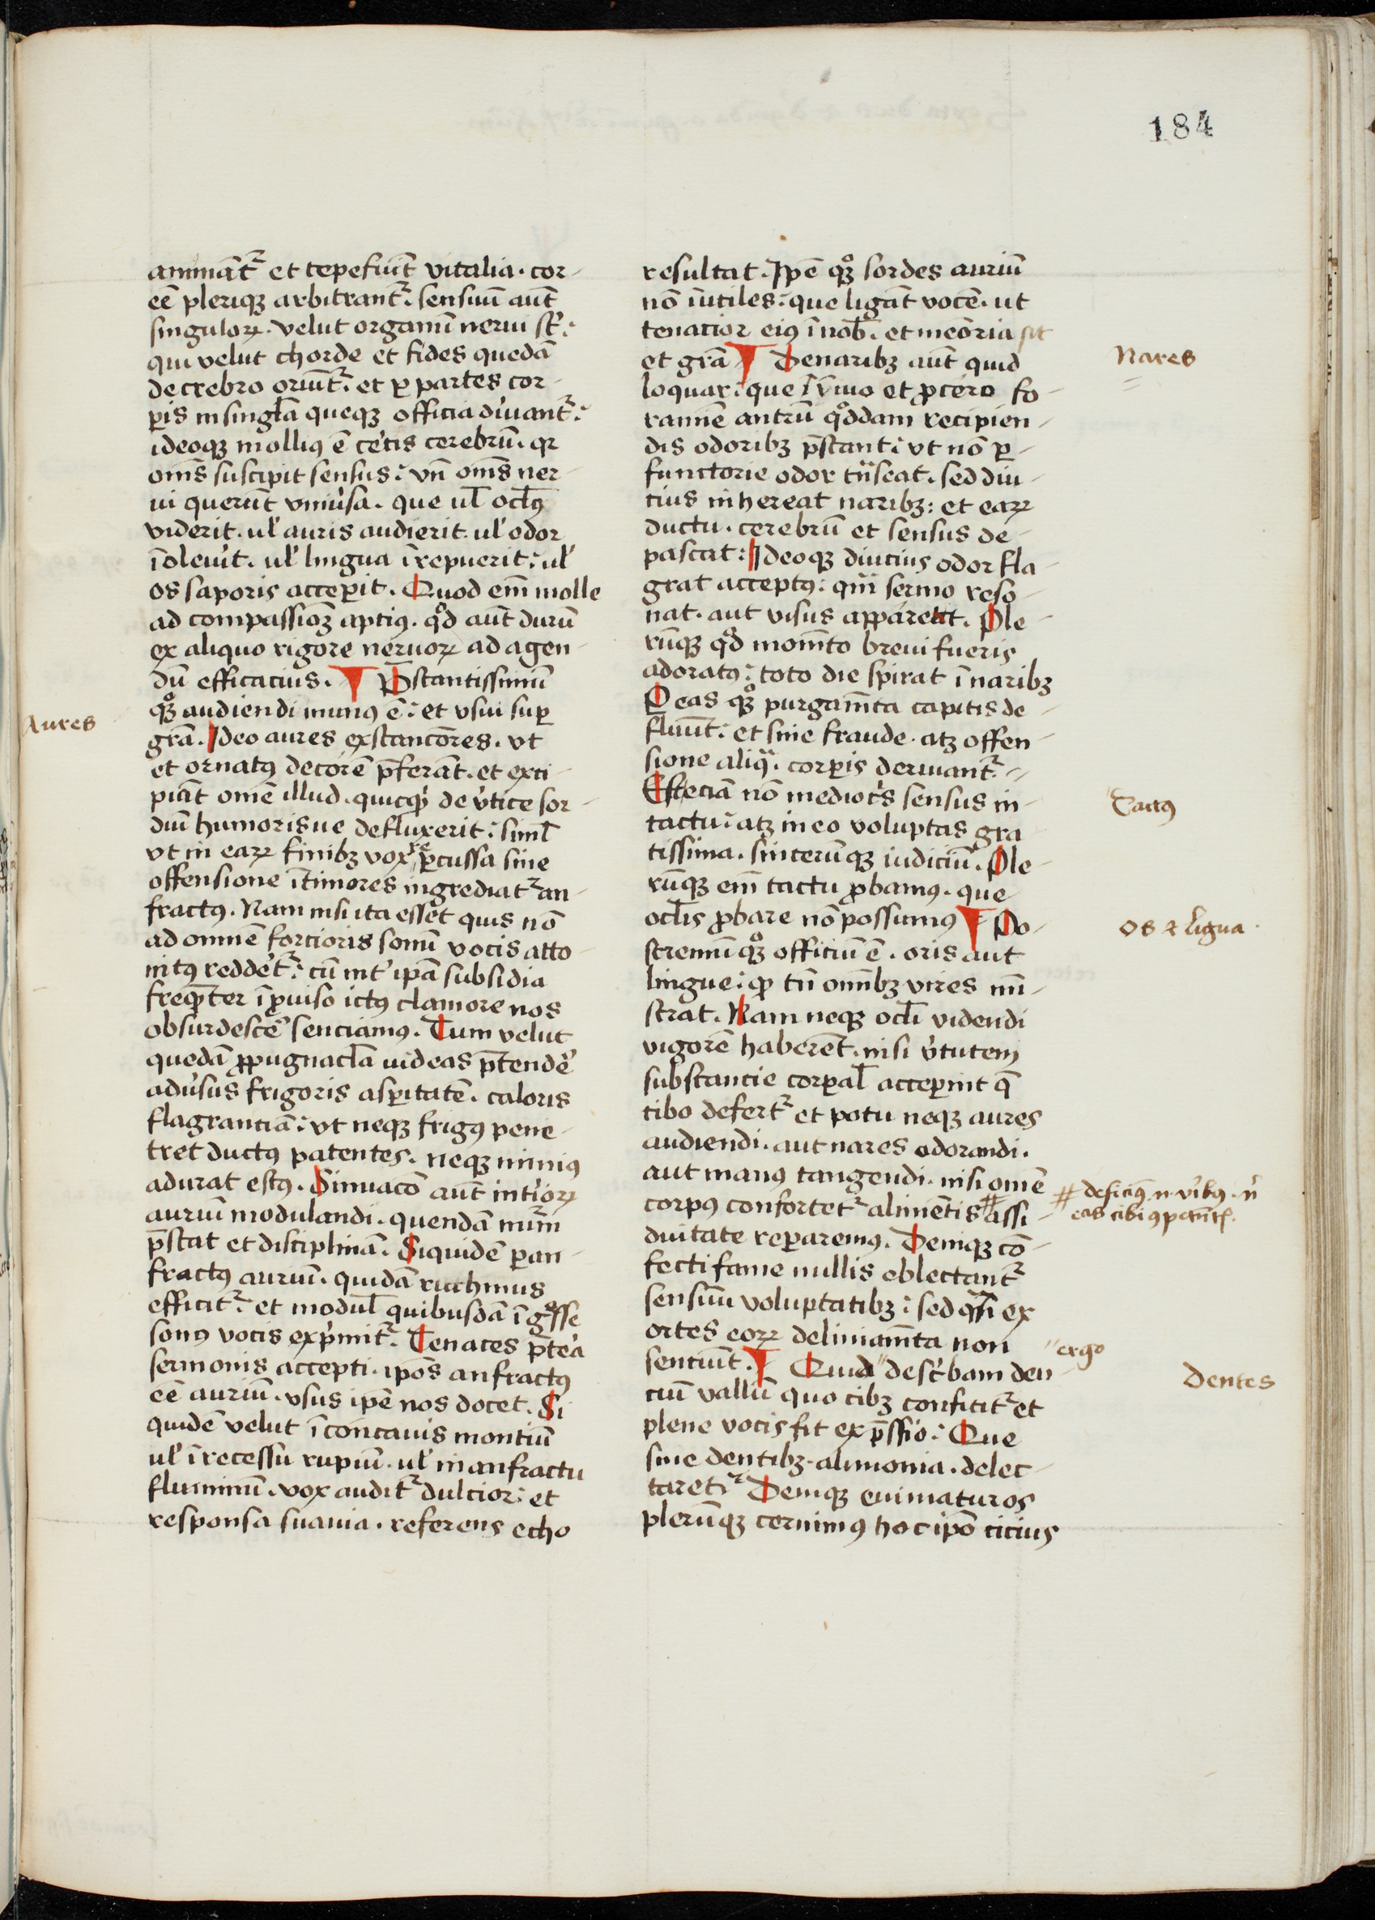 184
animāt᷑ et tepefiūt vitalia. cor-
eē plerique arbitrant᷑. sensuū aūt
singuloꝝ. velut organū nerui sūt:
qui velut chorde et fides quedā
de crebro oriūt᷑. et ꝑ partes cor-
ꝑis in singl̄a queqꝫ officia diriuant᷑:
ideoqꝫ mollius ē cet̓is cerebrū. qꝛ
om̄s suscipit sensus: vn̄ om̄s ner-
ui querūt vniu̓sa. que ul̄ ocl̄us
viderit. ul̓ auris audierit. ul̓ odor
īoleuit. ul̓ lingua īrepuerit: ul̓
os saporis acceꝑit. Quod em̄ molle
ad compassionē aptius. qd̓ aūt durū
ex aliquo rigore neruoꝝ ad agen-
dū efficacius. ¶ P̄stantissimū
Aures
qoqꝫ audiendi munus ē: et vsui suꝑ
grā. Ideo aures exstanc̄ores. vt
et ornatus decorē p̄ferāt. et exci-
piāt om̄e illud. quicqd̓ de v̓tice sor-
diū humorisue defluxerit: siml̄
vt in eaꝝ finibꝫ vox ꝑcussa sine
offensione ītimores ingrediat᷑ an-
fractus. Nam nisi ita esset quis nō
ad omnē forcioris sonū vocis atto-
nitus redderet᷑: cū int̓ ip̄a subsidia
freqn̄ter īꝓuiso ictus clamore nos
obsurdescē̓ senciamus. Tum velut
quedā ꝓpugnacl̄a uideas p̄tendē̓
adu̓sus frigoris asꝑitatē. caloris
flagranciā: vt neqꝫ frigus pene-
tret ductus patentes. neqꝫ nimius
adurat estus. Sinuacō aūt int̓ioꝝ
auriū modulandi. quendā num̄m
p̄stat et disciplinā. Siquidē ꝑ an-
fractus auriū. quidā rithmus
efficit᷑. et modul̄ quibusdā īgresse
sonus vocis exp̓mit᷑. Tenaces p̄t̓ea
sermonis accepti. ip̄os anfractus
eē auriū. vsus ip̄e nos docet. Si
quidē velut ī concauis montiū
ul̓ ī recessu rupiū. ul̓ in anfractu
fluminū. vox audit᷑ dulcior: et
responsa suauia. referens echo
resultat. Ip̄e qoqꝫ sordes auriū
nō īutiles: que ligāt vocē. ut
tenacior eius ī nob̄. et mem̄oria sit
et grā ¶ De naribꝫ aūt quid
Nares
loquar: que īviuo et ꝓcero fo-
ramē antrū qoddam recipien-
dis odoribꝫ p̄stant: vt nō ꝑ-
functorie odor tn̄seat. sed diu-
cius inhereat naribꝫ: et eaꝝ
ductu. cerebrū et sensus de-
pascat: Ideoqꝫ diucius odor fla-
grat acceptus: qm̄ sermo reso-
nat. aut visus apparent. Ple-
rūqꝫ qd̓ mom̄to breui fueris
adoratus: toto die spirat ī naribꝫ
P eas qoqꝫ purgam̄ta capitis de-
fluūt: et sine fraude. atqꝫ offen-
sione aliqa. corꝑis deriuant᷑.
Est eciā nō mediocris sensus in
Tactus
tactu: atqꝫ in eo voluptas gra
tissima. sincerūqꝫ iudiciū. Ple-
rūqꝫ em̄ tactu ꝓbamus. que
ocl̄is ꝓbare nō possumus ¶ Po-
Os ⁊ Ligua.
stremū qoqꝫ officiū ē. oris aut
lingue: ꝙ tn̄ om̄ibꝫ vires mi-
strat. Nam neqꝫ ocl̄i videndi
vigorē haberent. nisi v̓tutem
substancie corꝑal̄ acceꝑint q̄
cibo defert᷑ et potu neqꝫ aures
audiendi. aut nares odorandi.
aut manus tangendi. nisi om̄e
corpus confortet᷑ alimētis ⌗ assi-
⌗ deficimus .n. viribus .n̄
eas cibi
duitate reꝑaremus. Deniqꝫ cō-
fecti fame nullis oblectant᷑
sensuū voluptatibꝫ: sed qa̓si ex
ortes eoꝝ deliniam̄ta non
senciūt. ¶ Quid " desc̓bam den
" ergo
Dentes
ciū vallū quo cibꝫ conficit᷑ et
plene vocis fit exp̄ssio: Que
sine dentibꝫ. alimonia. delec-
taret᷑ Deniqꝫ eui maturos
plerūqꝫ cernimus hoc ip̄o cicius